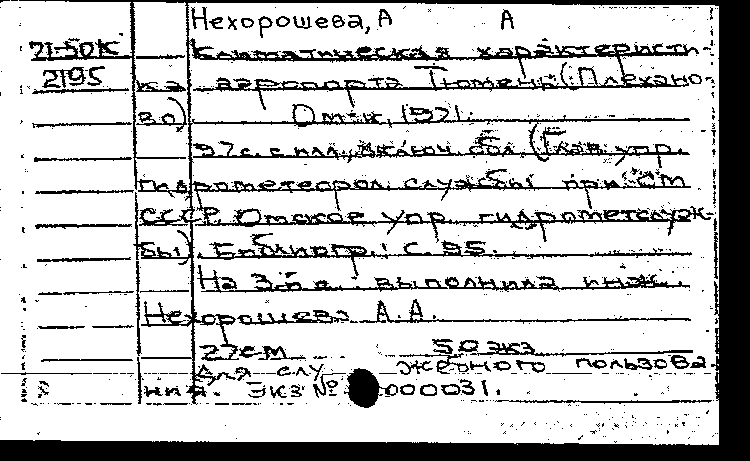 Нехорошева, А А
71-50К Климатическая характеристи-
2195 ка аэропорта Тюмень (Плехано-
во). Омск, 1971.
97с. с илл., включ. обл. (Глав. упр.
гидрометеорол. службы при СМ
СССР. Омское упр. гидрометслуж-
бы). Библиогр.: с. 95.
На 3-й с.: выполнила инж.
Нехорошева А.А.
27см 50 экз
Для служебного пользова-
ния. Экз № 000031.